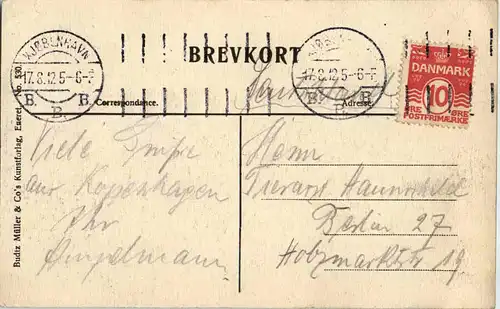 KJØBENHAVN
17.8.12 5-6-F
B. B. B.
BREVKORT
KJØB
17.8.12 5-6-F
B. B. B.
DANMARK
10
ØRE ØRE
POSTFRIMÆRKE
Correspondance.
Adresse.
Viele Grüße
aus Kopenhagen
Ihr
Angelmann
Herrn
Tierarzt
Berlin 27
Holzmarktstr 19
Buditz Müller & Co's Kunstforlag, Eneret No. 530.